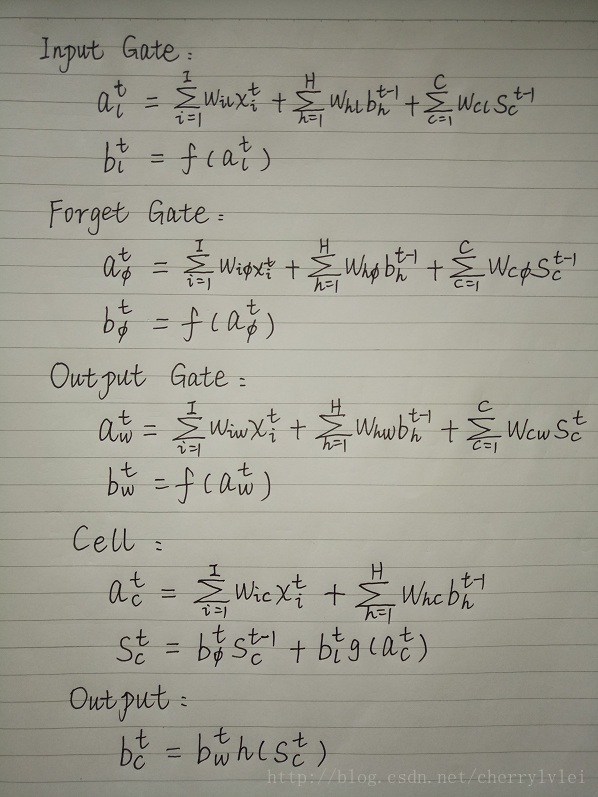 Input Gate:
a_l^t = ∑_{i=1}^{I} w_{il} x_i^t + ∑_{h=1}^{H} w_{hl} b_h^{t-1} + ∑_{c=1}^{C} w_{cl} s_c^{t-1}
b_l^t = f(a_l^t)
Forget Gate:
a_ϕ^t = ∑_{i=1}^{I} w_{iϕ} x_i^t + ∑_{h=1}^{H} w_{hϕ} b_h^{t-1} + ∑_{c=1}^{C} w_{cϕ} s_c^{t-1}
b_ϕ^t = f(a_ϕ^t)
Output Gate:
a_w^t = ∑_{i=1}^{I} w_{iw} x_i^t + ∑_{h=1}^{H} w_{hw} b_h^{t-1} + ∑_{c=1}^{C} w_{cw} s_c^t
b_w^t = f(a_w^t)
Cell:
a_c^t = ∑_{i=1}^{I} w_{ic} x_i^t + ∑_{h=1}^{H} w_{hc} b_h^{t-1}
s_c^t = b_ϕ^t s_c^{t-1} + b_l^t g(a_c^t)
Output:
b_c^t = b_w^t h(s_c^t)
http://blog.csdn.net/cherrylvlei